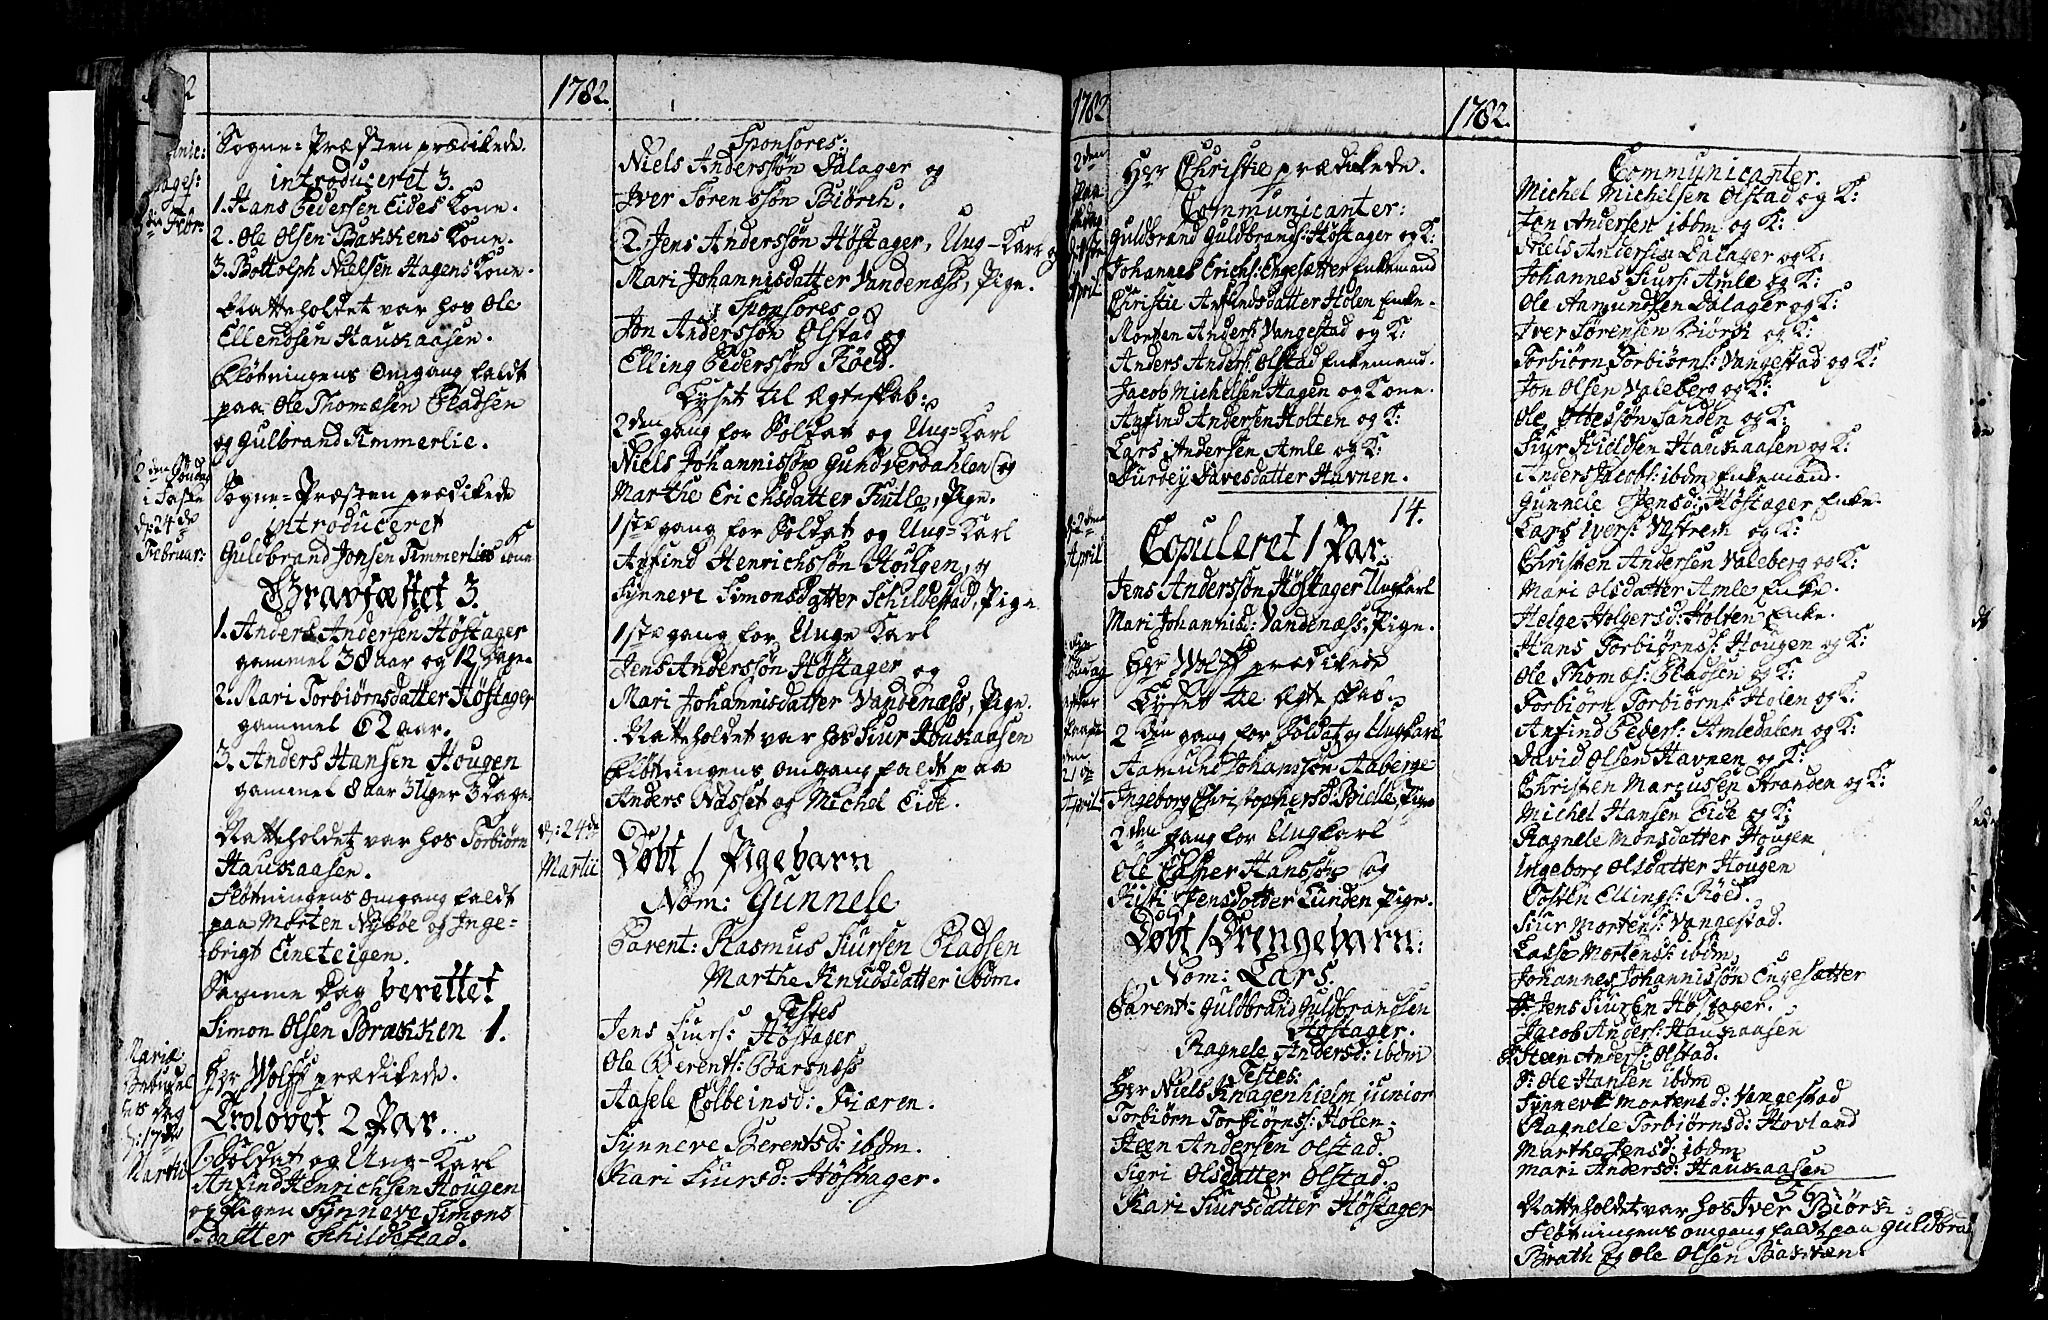 1782.
Sogne-Præsten prædikede.
introduceret 3.
1. Hans Pedersen Eides Kone.
2. Ole Olsen Bakkens Kone.
3. Bottolph Nielsen Hagens Kone.
Natteholdet var hos Ole
Ellendsen Haukaasen.
Fløtningens Omgang faldt
paa Ole Thomæsen Pladsen
og Gulbrand Timmerlie.
2den Søndag
i Faste
d: 24de
Februar:
Sogne-Præsten prædikede
introduceret
Guldbrand Jonsen Timmerlies Kone
Gravfæstet 3.
1. Anders Andersen Høstager
gammel 38 aar og 12 Dage.
2. Mari Torbiørnsdatter Høstager
gammel 62 aar.
3. Anders Hansen Hougen
gammel 8 aar 3 Uger 3 Dage.
Natteholdet var hos Torbiørn
Haukaasen.
Fløtningens omgang faldt
paa Morten Nybøe og Inge-
brigt Eneteigen.
Samme Dag berettet
Simon Olsen Brækken 1.
Mariæ
Bebudel
ses Dag
d: 17de
Martii
Hr Wolff prædikede.
Trolovet 2 Par.
1. Soldat og Ung-Karl
Anfind Henrichsen Hougen
og Pigen Synneve Simons
Datter Schildestad.
Sponsores:
Niels Anderssøn Dalager og
Iver Sørenssøn Biørch.
2. Jens Anderssøn Høstager, Ung-Karl og
Mari Johannisdatter Vandenæss, Pige.
Sponsores
Jon Anderssøn Olstad og
Elling Pederssøn Røed.
Lyset til Ægteskab:
2den gang for Soldat og Ung-Karl
Niels Johannissøn Gundverdahlen og
Marthe Erichsdatter Kulle, Pige.
1ste gang for Soldat og Ung-Karl
Anfind Henrichssøn Hougen, og
Synneve Simonsdatter Schildestad, Pige
1ste gang for Unge Karl
Jens Anderssøn Høstager og
Mari Johannisdatter Vandenæss, Pige.
Natteholdet var hos Siur Houkaasen
Fløtningens omgang faldt paa
Anders Nasset og Michel Eide.
d: 24de
Martii
Døbt 1 Pigebarn
Nom: Gunnele
Parent: Rasmus Siursen Pladsen
Marthe Knudsdatter ibdm.
Testes
Jens Siurs: Høstager
Ole Berents: Barsnæss
Aasele Colbeinsd: Fiæren.
Synneve Berentsd: ibdm.
Kari Siursd: Høstager.
1782
2den
Paa
ske dag
d: 1ste
April
Hr Christie prædikede.
Communicanter:
Guldbrand Guldbrands: Høstager og K:
Johannes Erichs: Engesætter Enkemand
Christie Anfindsdatter Holen Enke.
Morten Anders: Vangestad og K:
Anders Anders: Olstad Enkemand.
Jacob Michelsen Hagen og Kone.
Anfind Andersen Holten og K:
Lars Andersen Amle og K:
Durdey Davesdatter Havnen.
14.
d: 2den
April
Copuleret 1 Par.
Jens Anderssøn Høstager Ungkarl
Mari Johannisd: Vandenæss, Pige.
Paaske
den
21de
April:
Hr Wolff prædikede
Lyset til Ægteskab.
2den gang for Soldat og Ungkarl
Aamund Johanssøn Aaberge
Ingeborg Christophersd: Bielle, Pige
2den gang for Ungkarl
Ole Esper Hanssøn og
Kisti Jensdatter Lunden Pige.
Døbt 1 Drengebarn:
Nom: Lars.
Parent: Guldbrand Guldbrandsen
Høstager.
Ragnele Andersd: ibdm
Testes:
Hr Niels Knagenhielm junior
Torbiørn Torbiørns: Holen:
Steen Andersen Olstad.
Sigri Olsdatter Olstad.
Kari Siursdatter Høstager
1782.
Communicanter.
Michel Michelsen Olstad og K:
Jon Andersen ibdm og K:
Niels Andersen Dalager og K:
Johannes Siurs: Amle og K:
Ole Aamundsen Dalager og K:
Iver Sørensen Biørk og K:
Torbiørn Torbiørns: Vangestad og K:
Jon Olsen Valeberg og K:
Ole Ottessøn Sanden og K:
Siur Kieldsen Haukaasen og K:
Anders Jacobs: ibdm Enkemand.
Gunnele Jensd: Høstager Enke.
Lars Ivers: Vestrem og K:
Christen Andersen Valeberg og K:
Mari Olsdatter Amle Enke.
Helge Holgersd: Holten Enke.
Hans Torbiørns: Hougen og K:
Ole Thomæs: Pladsen og K:
Torbiørn Torbiørns: Holen og K:
Anfind Peders: Amledalen og K:
David Olsen Havnen og K:
Christen Marcusen Stranden og K:
Michel Hansen Eide og K:
Ragnele Monsdatter Hougen
Ingeborg Olsdatter Hougen
Tosten Ellings: Røed.
Siur Mortens: Vangestad.
Lasse Mortens: ibdm.
Johannes Johannissøn Engesætter
Jens Siursen Høstager.
Jacob Anders: Haukaasen
Steen Anders: Olstad.
Ole Hansen ibdm
Synneve Mortensd: Vangestad
Ragnele Torbiørnsd: Hovland
Marthe Jensd: ibdm
Mari Andersd: Haukaasen
56.
Natteholdet var hos Iver Biørk:
Fløtningens omgang faldt paa Guldbra
Brath og Ole Olsen Bakken: